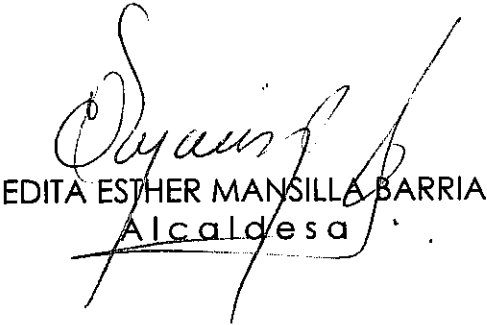 EDITA ESTHER MANSILLA BARRIA
Alcaldesa